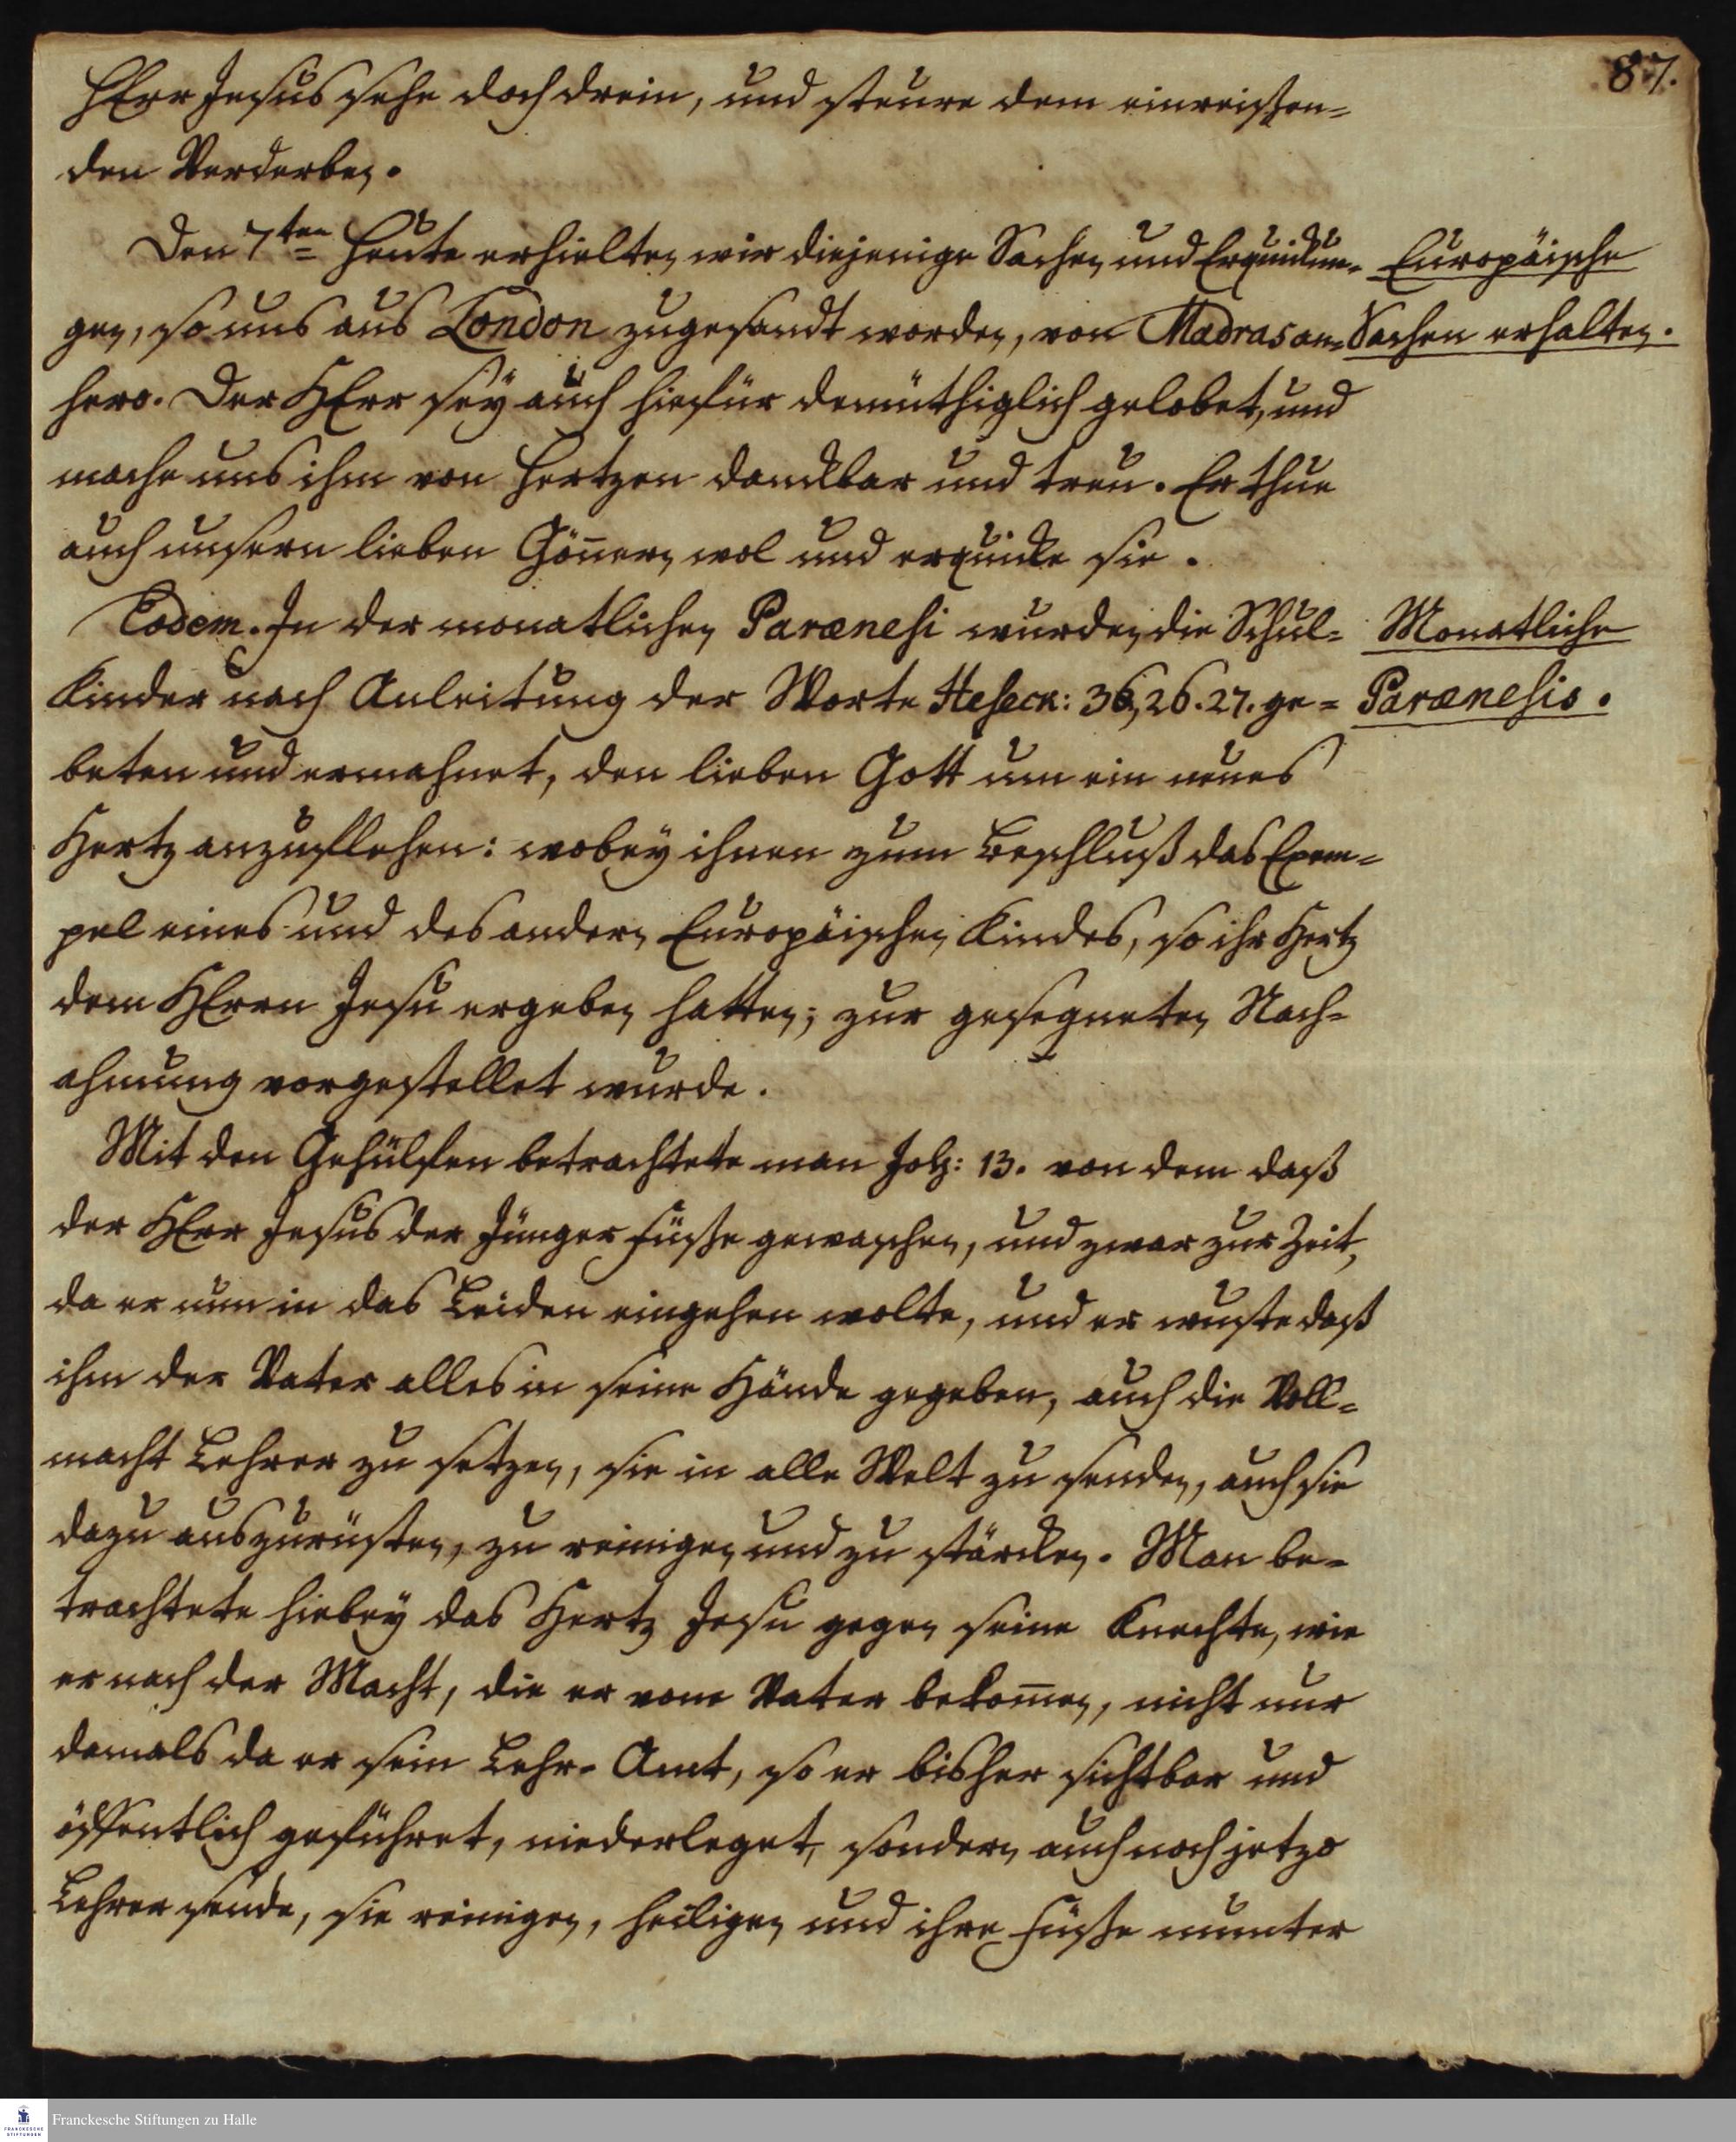 87.
HErr Jesus sehe doch drein, und steure dem einreissen=
den Verderben.
Den 7ten Heute erhielten wir diejenige Sachen und Erquickun=
Europäische
gen, so uns aus London zugesandt worden, von Madras an=
Sachen erhalten.
hero. Der HErr seÿ auch hiefür demüthiglich gelobet, und
mache uns ihm von Hertzen danckbar und treu. Er thue
auch unsern lieben Göñern wol und erquicke sie.
Eodem. In der monatlichen Parænesi wurden die Schul=
Monatliche
Kinder nach Anleitung der Worte Heseck: 36, 26. 27. ge=
Parænesis.
beten und ermahnet, den lieben Gott um ein neues
Hertz anzuflehen: wobeÿ ihnen zum Beschluß das Exem=
pel eines und des andern Europäischen Kindes, so ihr Hertz
dem HErrn Jesu ergeben hatten; zur gesegneten Nach=
ahmung vorgestellet wurde.
Mit den Gehülfen betrachtete man Joh: 13. von dem daß
der HErr Jesus der Jünger Füsse gewaschen, und zwar zur Zeit,
da er nun in das Leiden eingehen wolte, und er wuste daß
ihm der Vater alles in seine Hände gegeben, auch die Voll=
macht Lehrer zu setzen, sie in alle Welt zu senden, auch sie
dazu auszurüsten, zu reinigen und zu stärcken. Man be=
trachtete hiebeÿ das Hertz Jesu gegen seine Knechte, wie
er nach der Macht, die er vom Vater bekom̄en, nicht nur
damals da er sein Lehr=Amt, so er bisher sichtbar und
öffentlich geführet, niederleget, sondern auch noch jetzo
Lehrer sende, sie reinigen, heiligen und ihre Füsse munter
Franckesche Stiftungen zu Halle
FRANCKESCHE
STIFTUNGEN